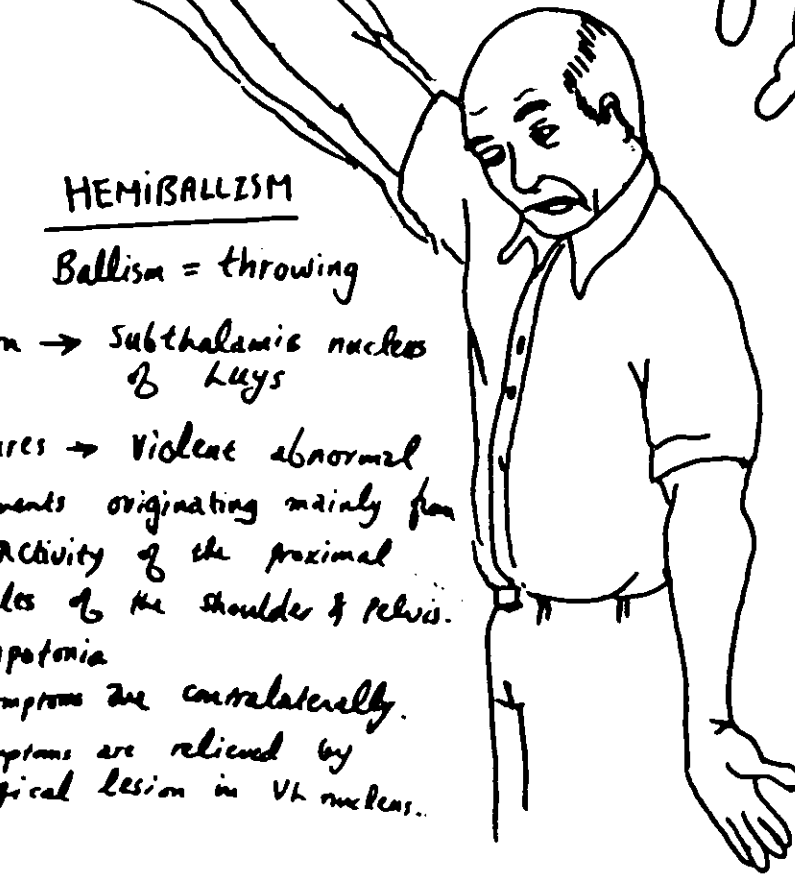 HEMiBALLISM
Ballism = throwing
on → Subthalamic nucleus
of Luys
ures → Violent abnormal
ments originating mainly from
Activity of the proximal
les of the shoulder & pelvis.
potonia
mptoms are contralaterally.
mptoms are relieved by
gical lesion in VL nucleus..